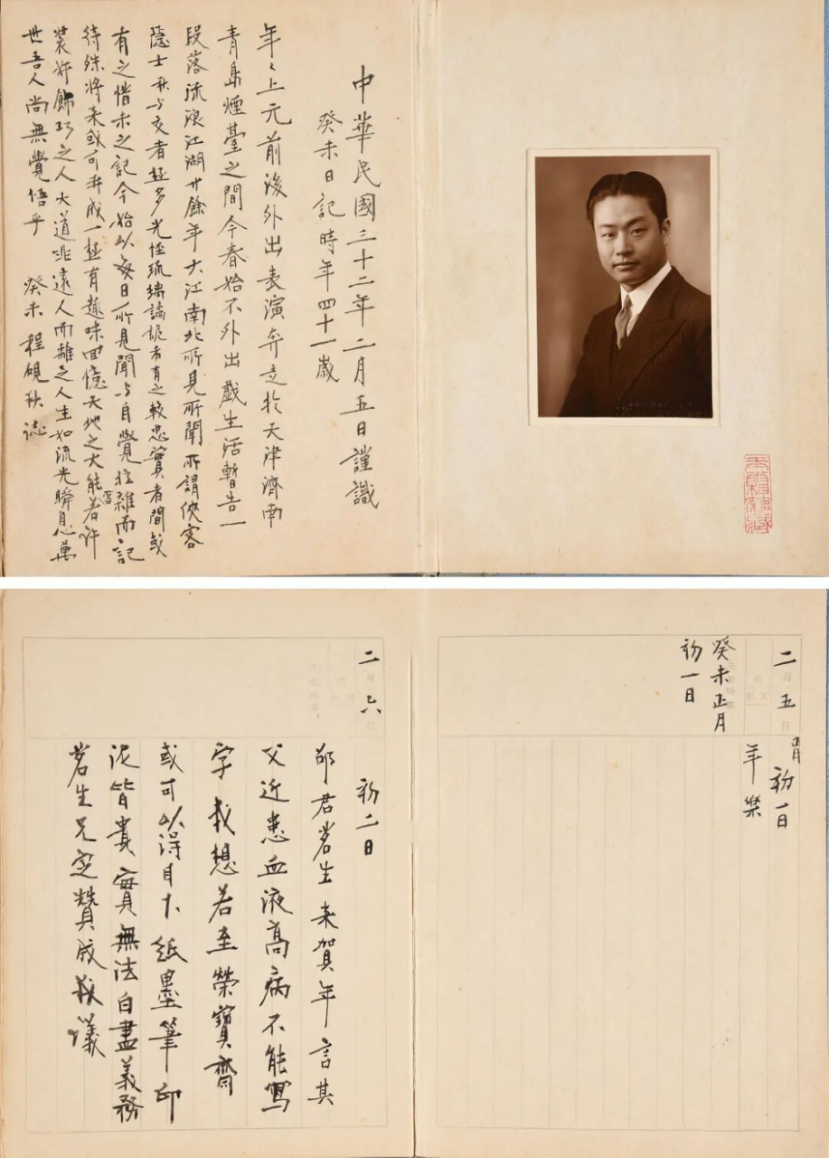 中華民國三十二年二月五日謹識
癸未日記時年四十一歲
年〻上元前後外出表演奔走於天津濟南
青島煙臺之間今春始不外出戲生活暫告一
段落流浪江湖廿餘年大江南北所見所聞所謂俠客
隱士我与交者極多光怪琉璃譎詭者有之較忠實者間或
有之惜未之記今始以每日所見聞与自覺拉雜而記
待殊將來或可弄成一極有趣味回憶天地之大能若許
裝奸飾巧之人大道非遠人而離之人生如流光瞬息萬
世吾人尚無覺悟乎 癸未 程硯秋誌
二月五日
癸未正月
初一日
初一日
年樂
二月六日
初二日
邵君茗生來賀年言其
父近患血液高病不能寫
字我想若至榮寶齋
或可以得目下紙墨筆印
泥皆貴實無法白盡義務
茗生兄定贊成我議